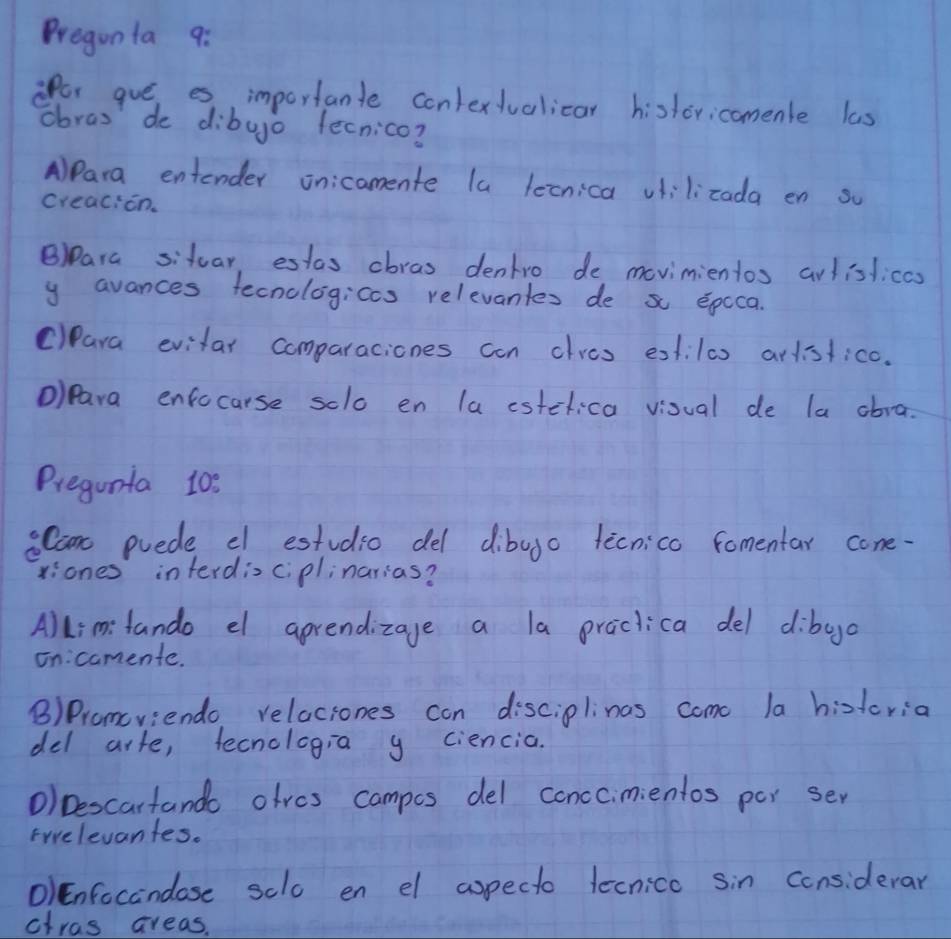 Pregunta 9:
¿Por qué es importante contextualicar históricamente las
obras de dibujo tecnico?
A) Para entender únicamente la técnica utilizada en su
creación.
B) Para situar estas obras dentro de movimientos artísticos
y avances tecnológicos relevantes de su época.
C) Para evitar comparaciones con otros estilos artístico.
D) Para enfocarse solo en la estética visual de la obra.
Pregunta 10:
¿Como puede el estudio del dibujo técnico fomentar cone-
xiones interdisciplinarias?
A) Limitando el aprendizaje a la práctica del dibujo
únicamente.
B) Promoviendo relaciones con disciplinas como la historia
del arte, tecnología y ciencia.
D) Descartando otros campos del conocimientos por ser
irrelevantes.
D) Enfocándose solo en el aspecto técnico sin considerar
otras áreas.